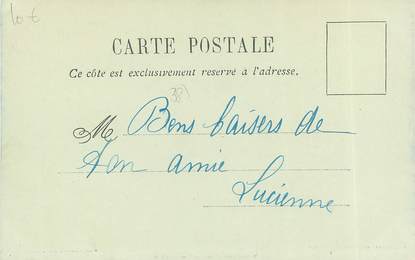 10 €
CARTE POSTALE
Ce côté est exclusivement reservé à l'adresse.
381
M Bons baisers de
ton amie
Lucienne